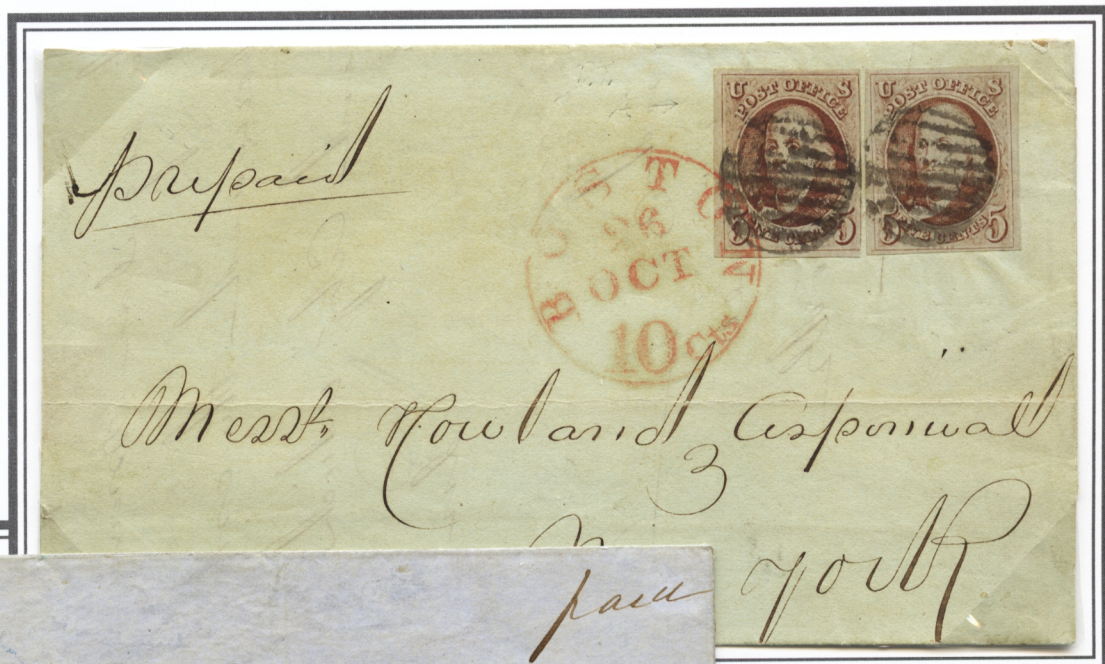 prepaid
U S
POST OFFICE
5 FIVE CENTS 5
U S
POST OFFICE
5 FIVE CENTS 5
BOSTON
26
OCT
10 cts
Messrs. Howland & Aspinwal
York
paid